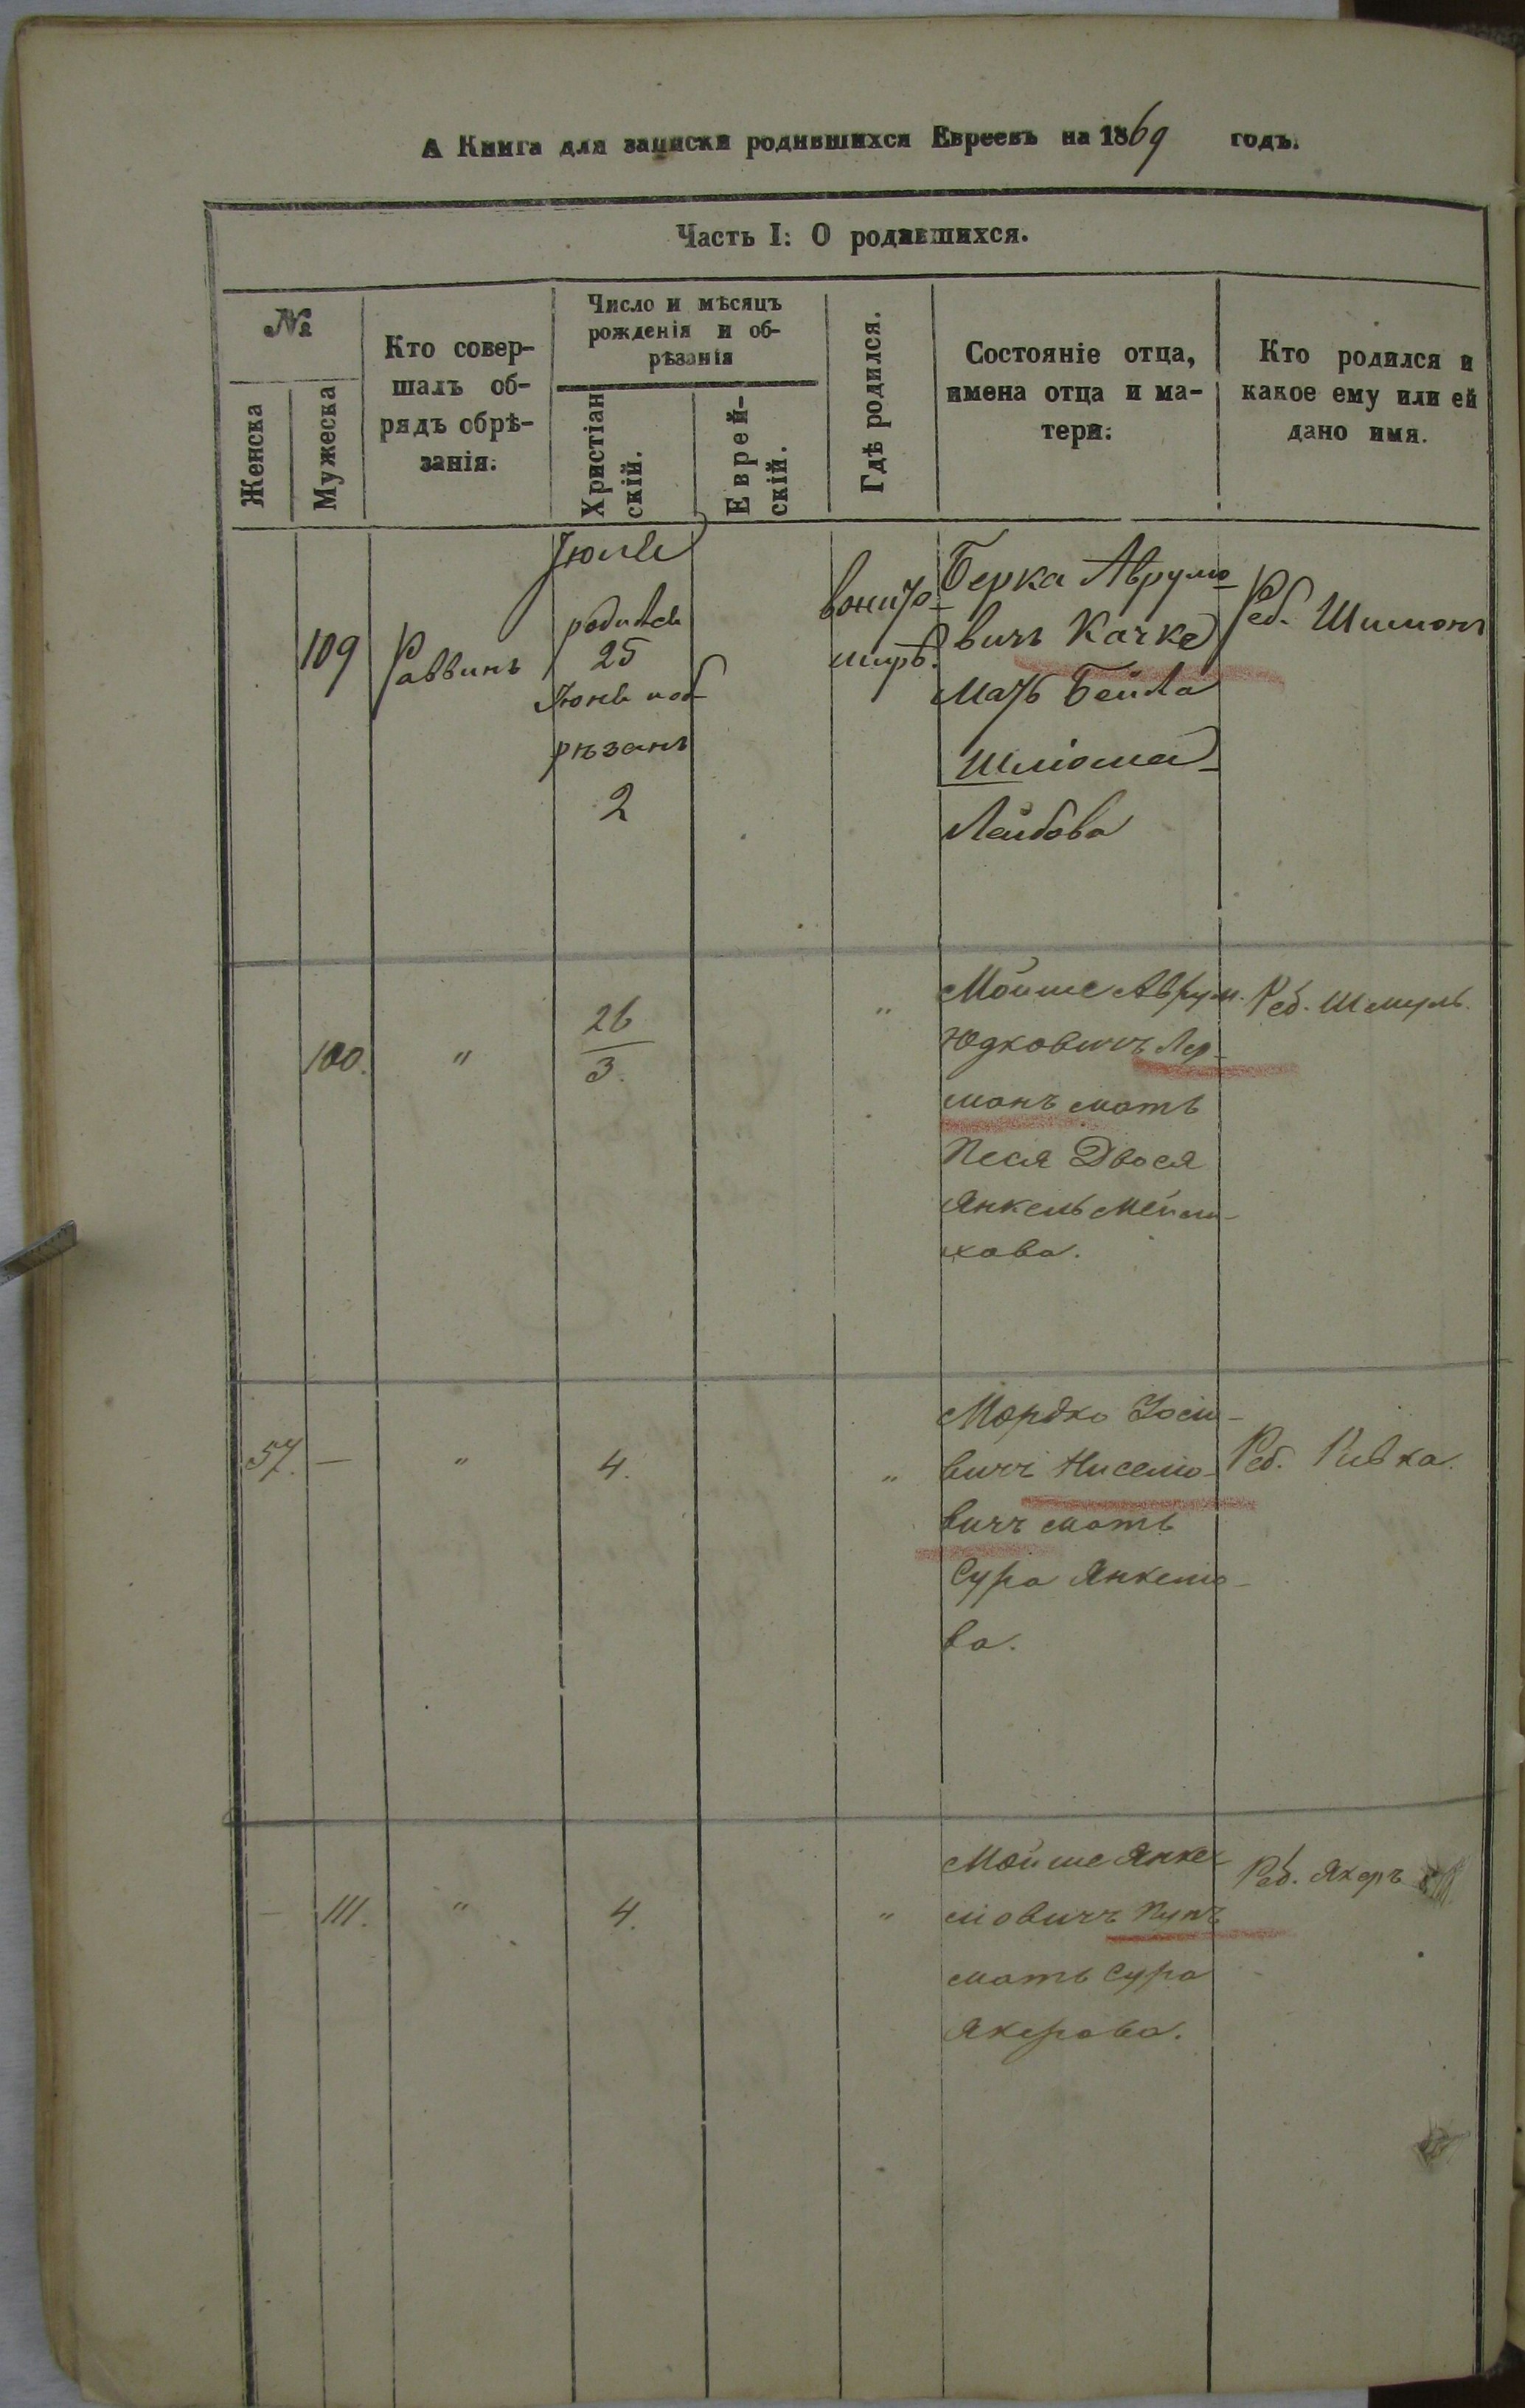 А Книга для записки родившихся Евреевъ на 1869 годъ.
Часть I: О родившихся.
№
Женска
Мужеска
Кто совер-
шалъ об-
рядъ обрѣ-
занія.
Число и мѣсяцъ
рожденія и об-
рѣзанія
Христіан
скій.
Еврей-
скій.
Гдѣ родился.
Состояніе отца,
имена отца и ма-
тери.
Кто родился и
какое ему или ей
дано имя.
109
Раввинъ
родился
25
рѣзанъ
2
Берка Аврумо
вичъ Качке
Мать Бейла
Шліома
Лейбова
Реб. Шимонъ
100.
"
26
3.
"
Мойше Аврум.
Юдковичъ Лер-
манъ мать
Песя Двося
Янкель Мейли-
хова.
Реб. Шмуль.
57.
—
"
4.
"
Мордко Іосіо-
вичъ Ниселіо-
вичъ мать
Сура Янкеліо-
ва.
Реб. Ривка.
—
111.
"
4.
"
Мойше Янке
ліовичъ Пупъ
мать Сура
Якерова.
Реб. Якеръ